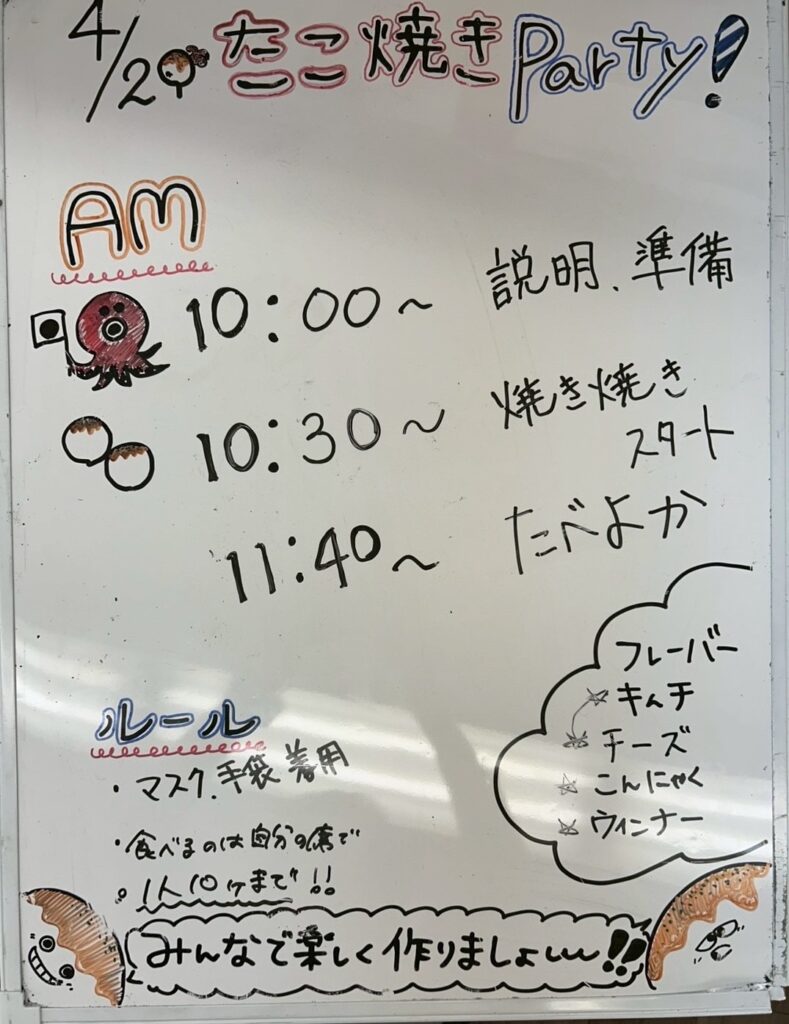 4/20 たこ焼きParty!
AM
10:00～ 説明、準備
10:30～ 焼き焼き
スタート
11:40～ たべよか
フレーバー
キムチ
チーズ
こんにゃく
ウィンナー
ルール
・マスク、手袋着用
・食べるのは自分の席で
。1人10ヶまで!!
みんなで楽しく作りましょぃぃぃ!!